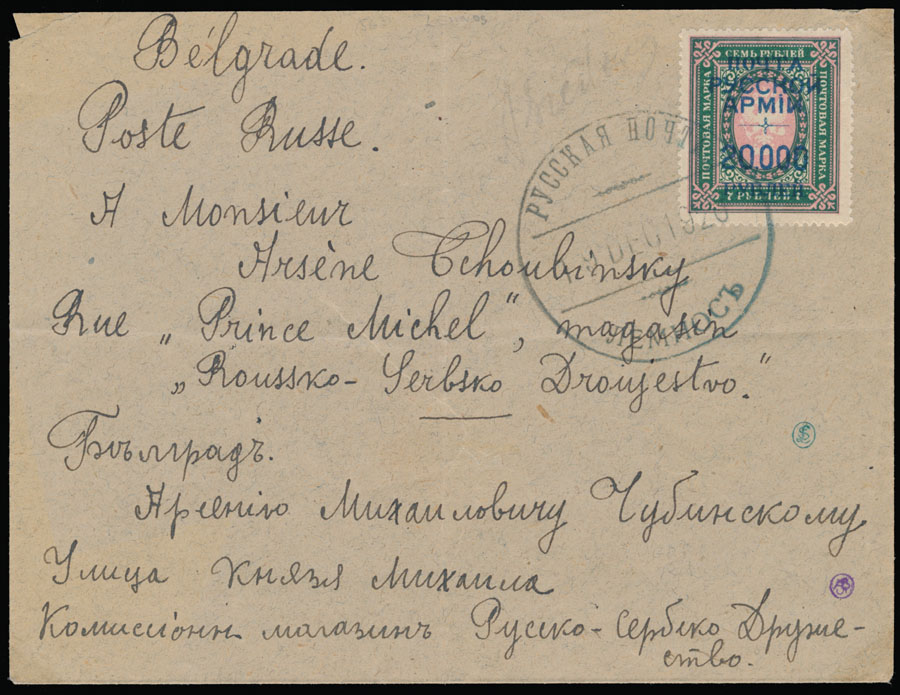 Bélgrade.
Poste Russe.
A Monsieur
Arsène Tchoubinsky
Rue „Prince Michel", magasin
„Roussko-Serbsko Droujestvo."
Бѣлградъ.
Арсенію Михаиловичу Чубинскому
Улица Князя Михаила
Комиссіонн магазинъ Русско-Сербско Друже-
ство.
СЕМЬ РУБЛЕЙ
ПОЧТОВАЯ МАРКА
ПОЧТОВАЯ МАРКА
7 РУБЛЕЙ 7
ПОЧТА
РУССКОЙ
АРМІИ
20.000
РУБЛЕЙ
РУССКАЯ ПОЧТА
DEC 1920
ЛЕМНОСЪ